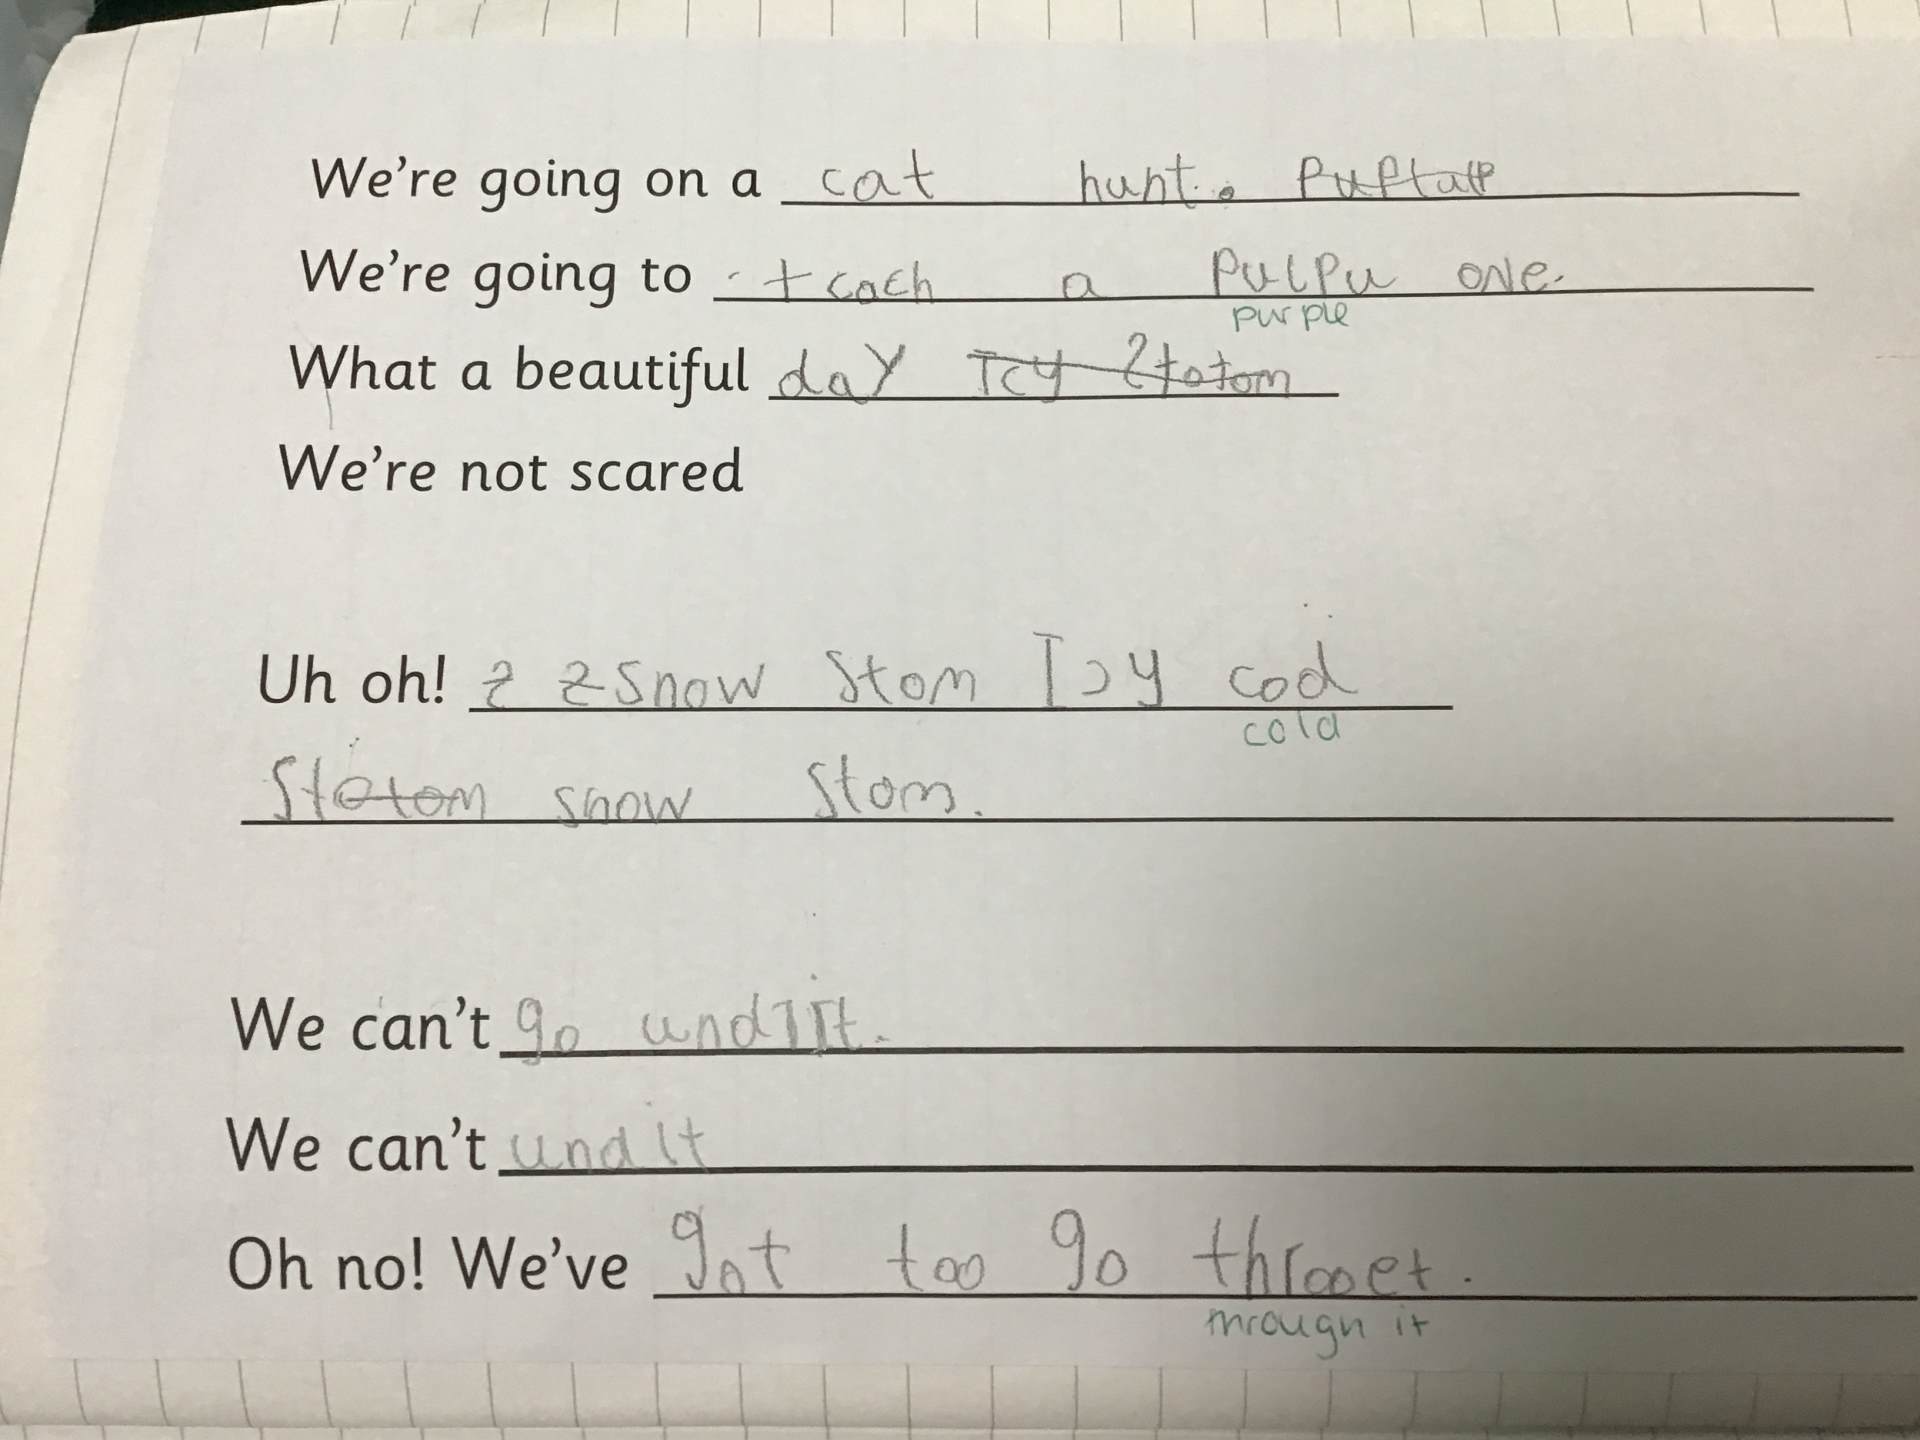 We're going on a cat hunt.
We're going to t cach a pulpu one.
purple
What a beautiful day Icy
We're not scared
Uh oh! snow stom Icy cod
cold
Stotom snow stom.
We can't go und It.
We can't und it
Oh no! We've got too go throoet.
through it